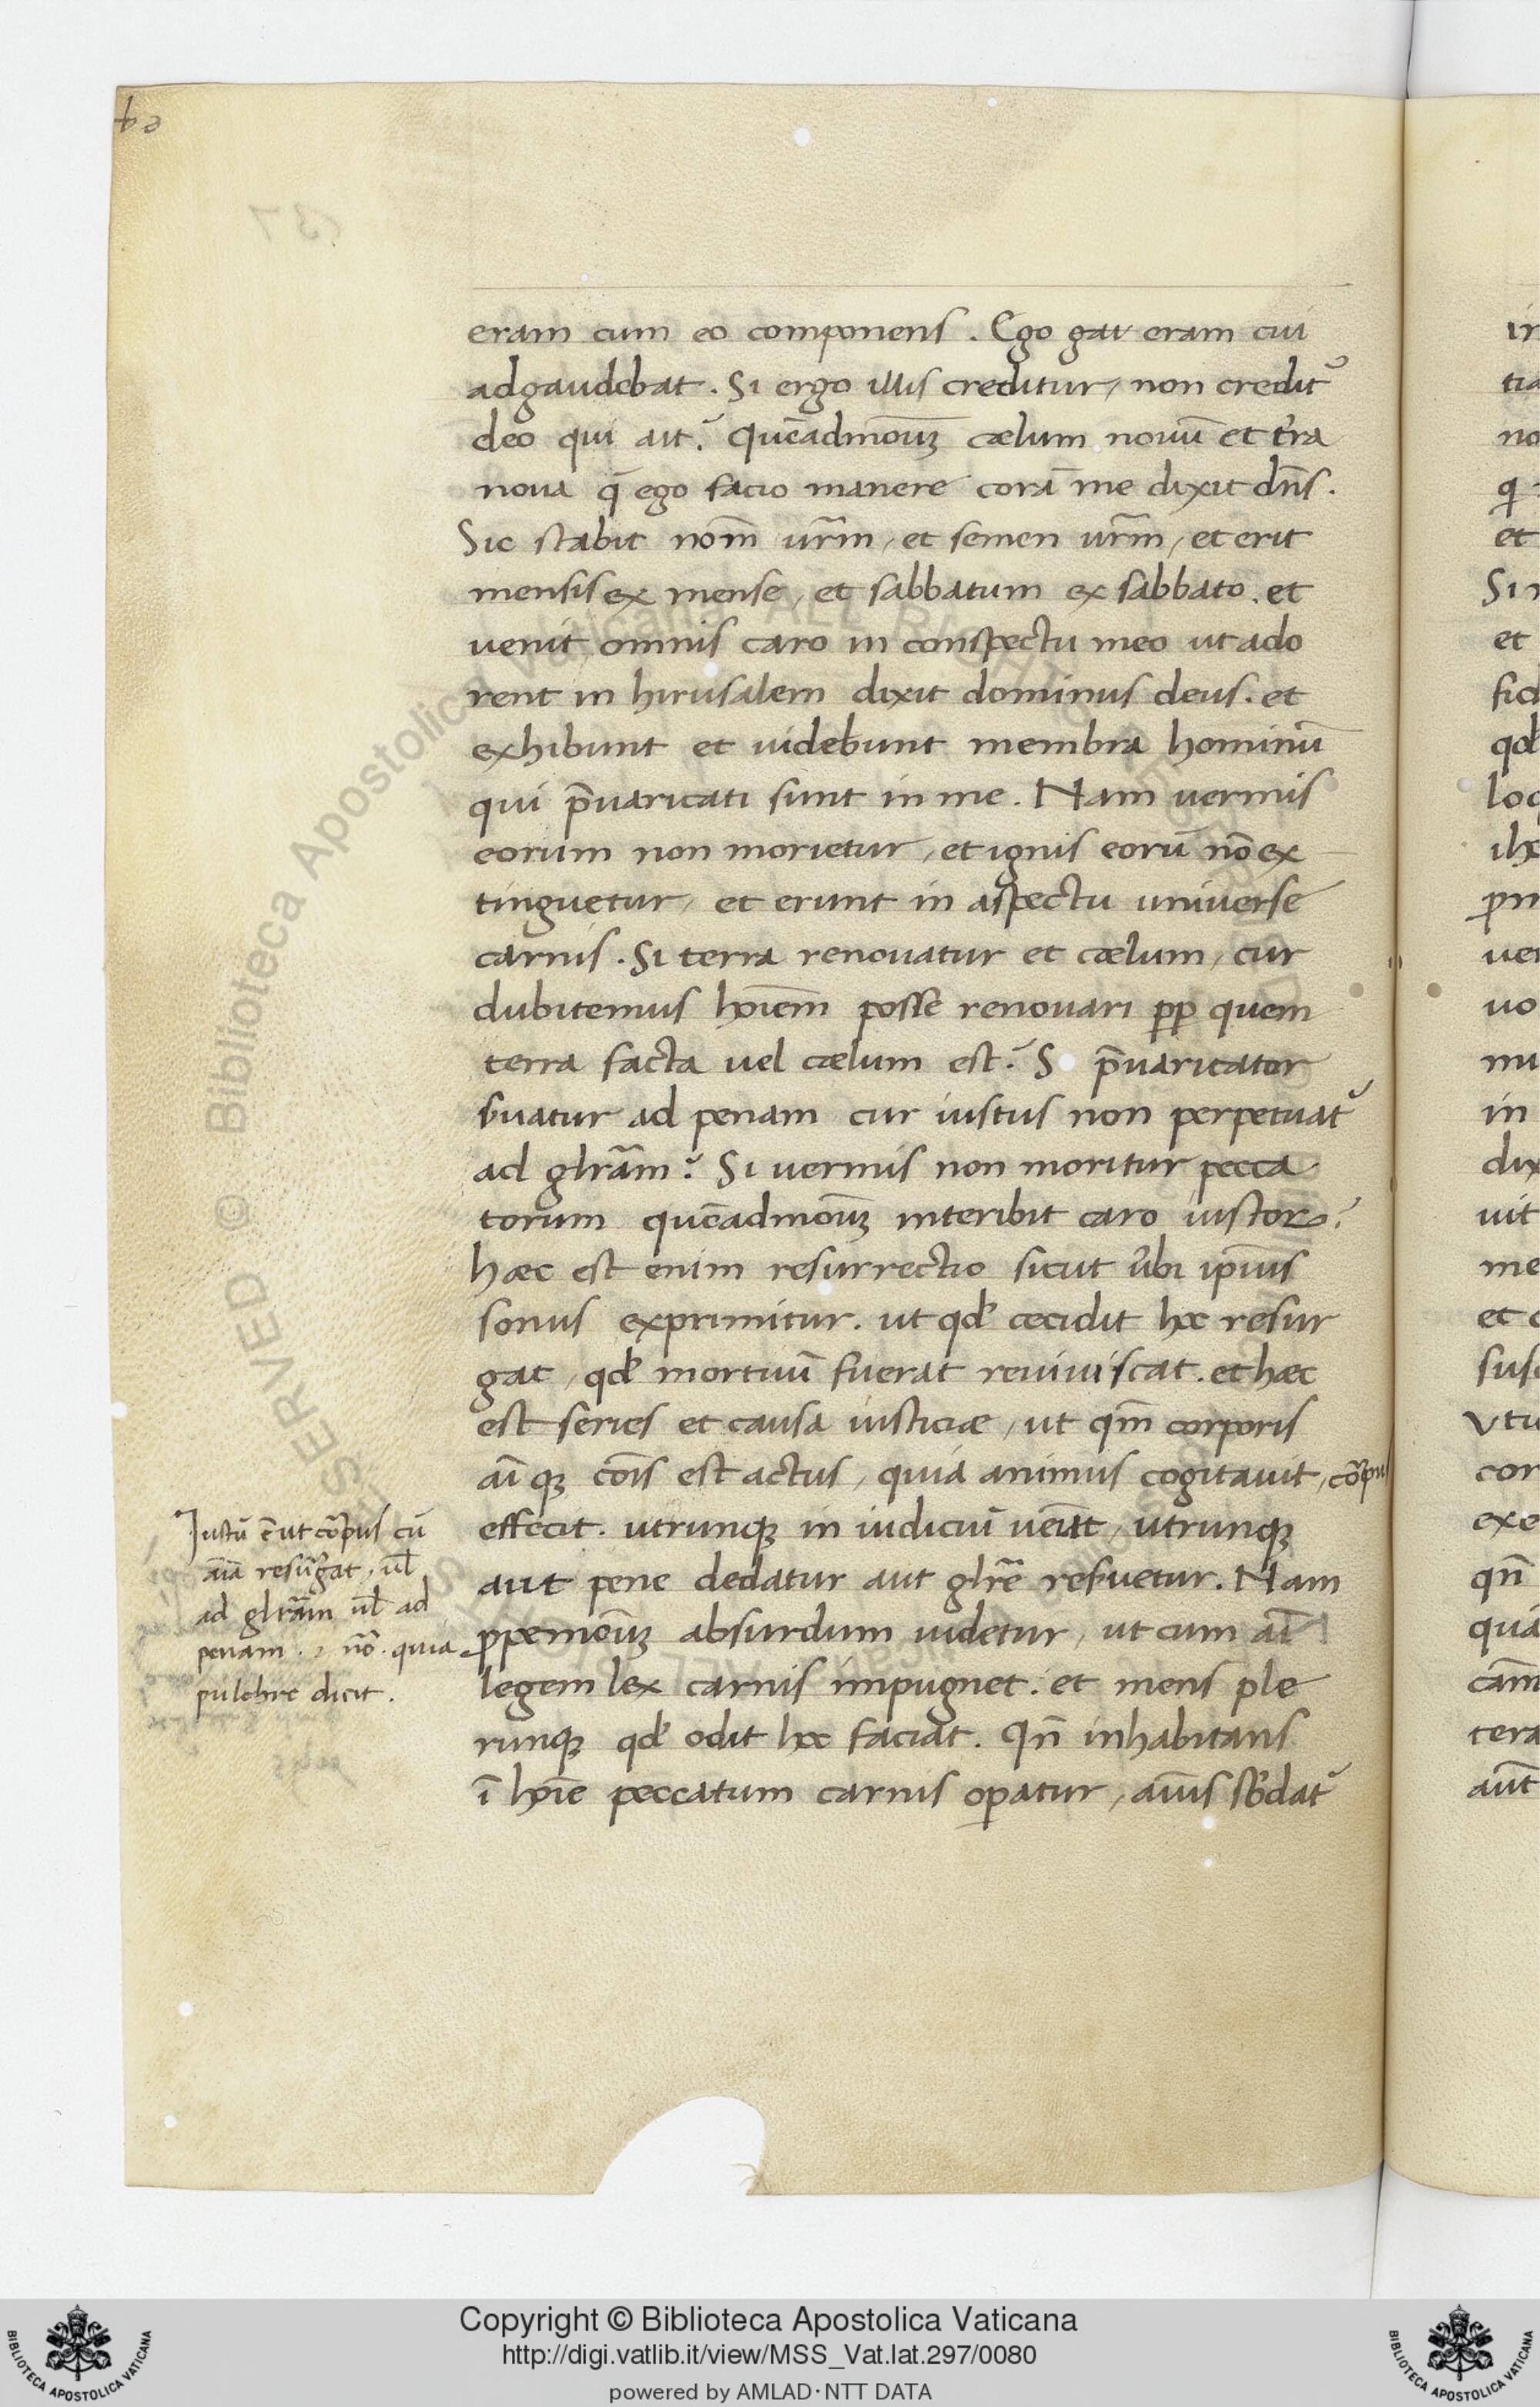 eram cum eo componens. Ego gat eram cui
adgaudebat. Si ergo illis creditur, non credit᷑
deo qui ait? Quēadmoūꝫ cælum nouū et t̃ra
noua q̄ ego facio manere corā me dixit dn̄s.
Sic stabit nom̄ ur̄m, et semen ur̄m, et erit
mensis ex mense, et sabbatum ex sabbato. et
uenit omnis caro in conspectu meo ut ado
rent in hirusalem dixit dominus deus. et
exhibunt et uidebunt membra hominū
qui p̄uaricati sunt in me. Nam uermis
eorum non morietur, et ignis eorū nō ex
tinguetur, et erunt in aspectu universe
carnis. Si terra renouatur et cælum, cur
dubitemus hoīem posse renouari pp̄ quem
terra facta uel cælum est? S p̄uaricator
s̃uatur ad penam cur iustus non perpetuat᷑
ad glr̄am? Si uermis non moritur pecca
torum quēadmoūꝫ interibit caro iustoꝝ?
Hæc est enim resurrectio sicut ũbi ip̄ius
sonus exprimitur. ut qd̛ cecidit hoc resur
gat, qd̛ mortuū fuerat reuiuiscat. et hæc
est series et causa iusticiæ, ut qm̄ corporis
aī qꝫ cōis est actus, quia animus cogitauit, cōrpus
effecit. utrunqꝫ in iudiciū ueīt, utrunqꝫ
aut pene dedatur aut glr̄e res̃uetur. Nam
ꝓpemoūꝫ absurdum uidetur, ut cum aī
legem lex carnis impugnet. et mens ple
runqꝫ qd̛ odit hoc faciat. Qn̄ inhabitans
ī hoīe peccatum carnis oꝑatur, aīus sb̄dat᷑
Iustū ē ut cōrpus cū
aīa resurgat, ul̄
ad glr̄am ul̄ ad
penam. nō. quia
pulchre dicit.
Copyright © Biblioteca Apostolica Vaticana
http://digi.vatlib.it/view/MSS_Vat.lat.297/0080
powered by AMLAD·NTT DATA